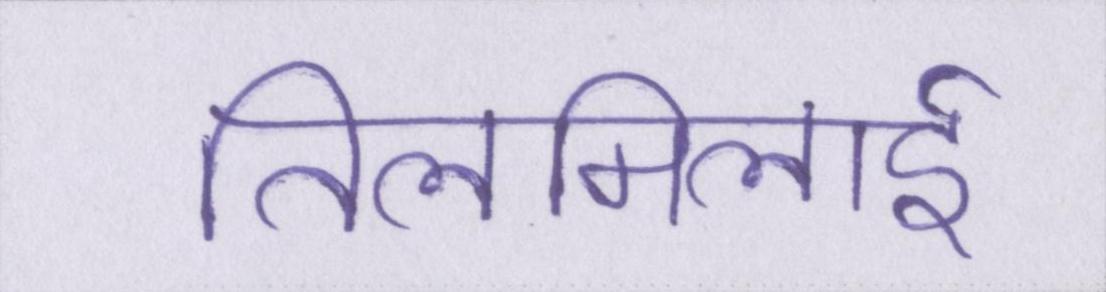 तिलमिलाई